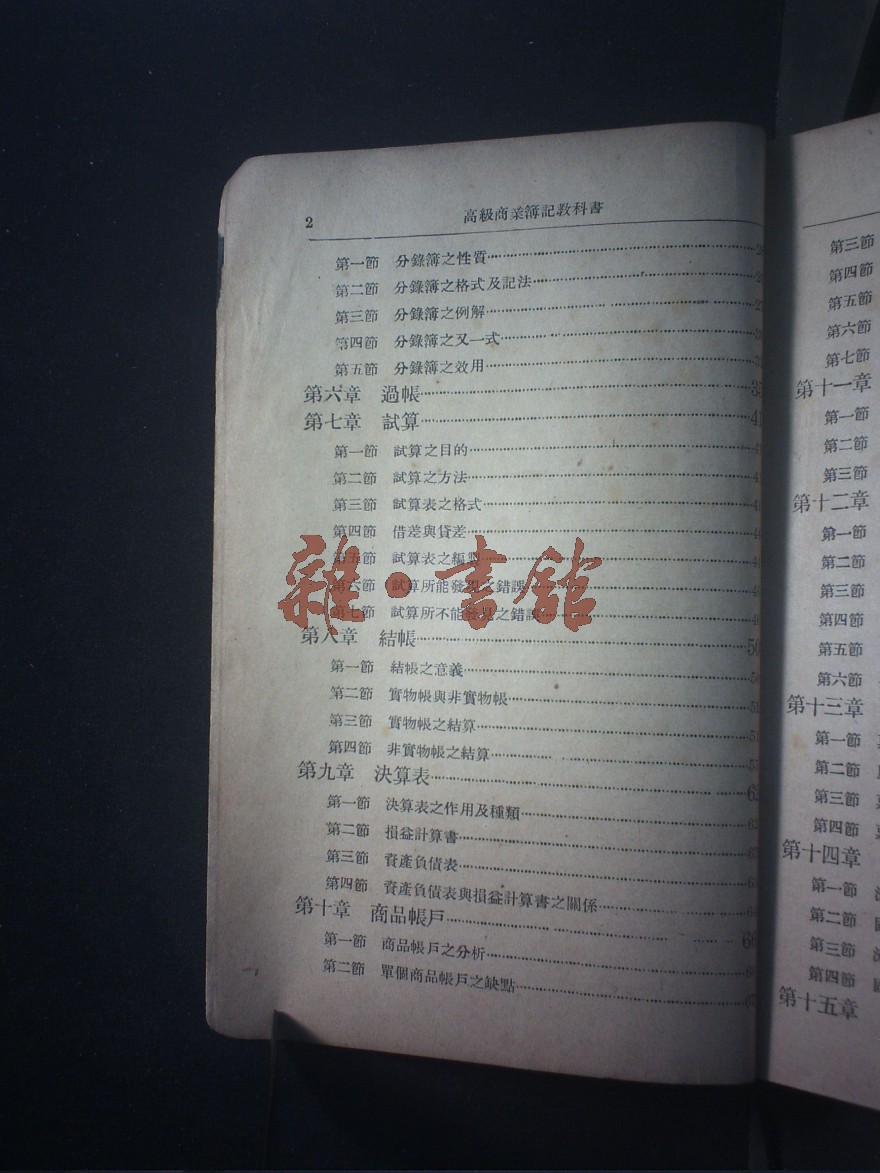 2 高級商業簿記教科書
第一節 分錄簿之性質
第二節 分錄簿之格式及記法
第三節 分錄簿之例解
第四節 分錄簿之又一式
第五節 分錄簿之效用
第六章 過帳
第七章 試算 41
第一節 試算之目的
第二節 試算之方法
第三節 試算表之格式
第四節 借差與貸差
第五節 試算表之編
第六節 試算所能發現之錯誤
第七節 試算所不能發見之錯誤
雜·書館
第八章 結帳 50
第一節 結帳之意義
第二節 實物帳與非實物帳
第三節 實物帳之結算
第四節 非實物帳之結算
第九章 決算表
第一節 決算表之作用及種類
第二節 損益計算書
第三節 資產負債表
第四節 資產負債表與損益計算書之關係
第十章 商品帳戶
第一節 商品帳戶之分析
第二節 單個商品帳戶之缺點
第三節
第四節
第五節
第六節
第七節
第十一章
第一節
第二節
第三節
第十二章
第一節
第二節
第三節
第四節
第五節
第六節
第十三章
第一節
第二節
第三節
第四節
第十四章
第一節
第二節
第三節
第四節
第十五章